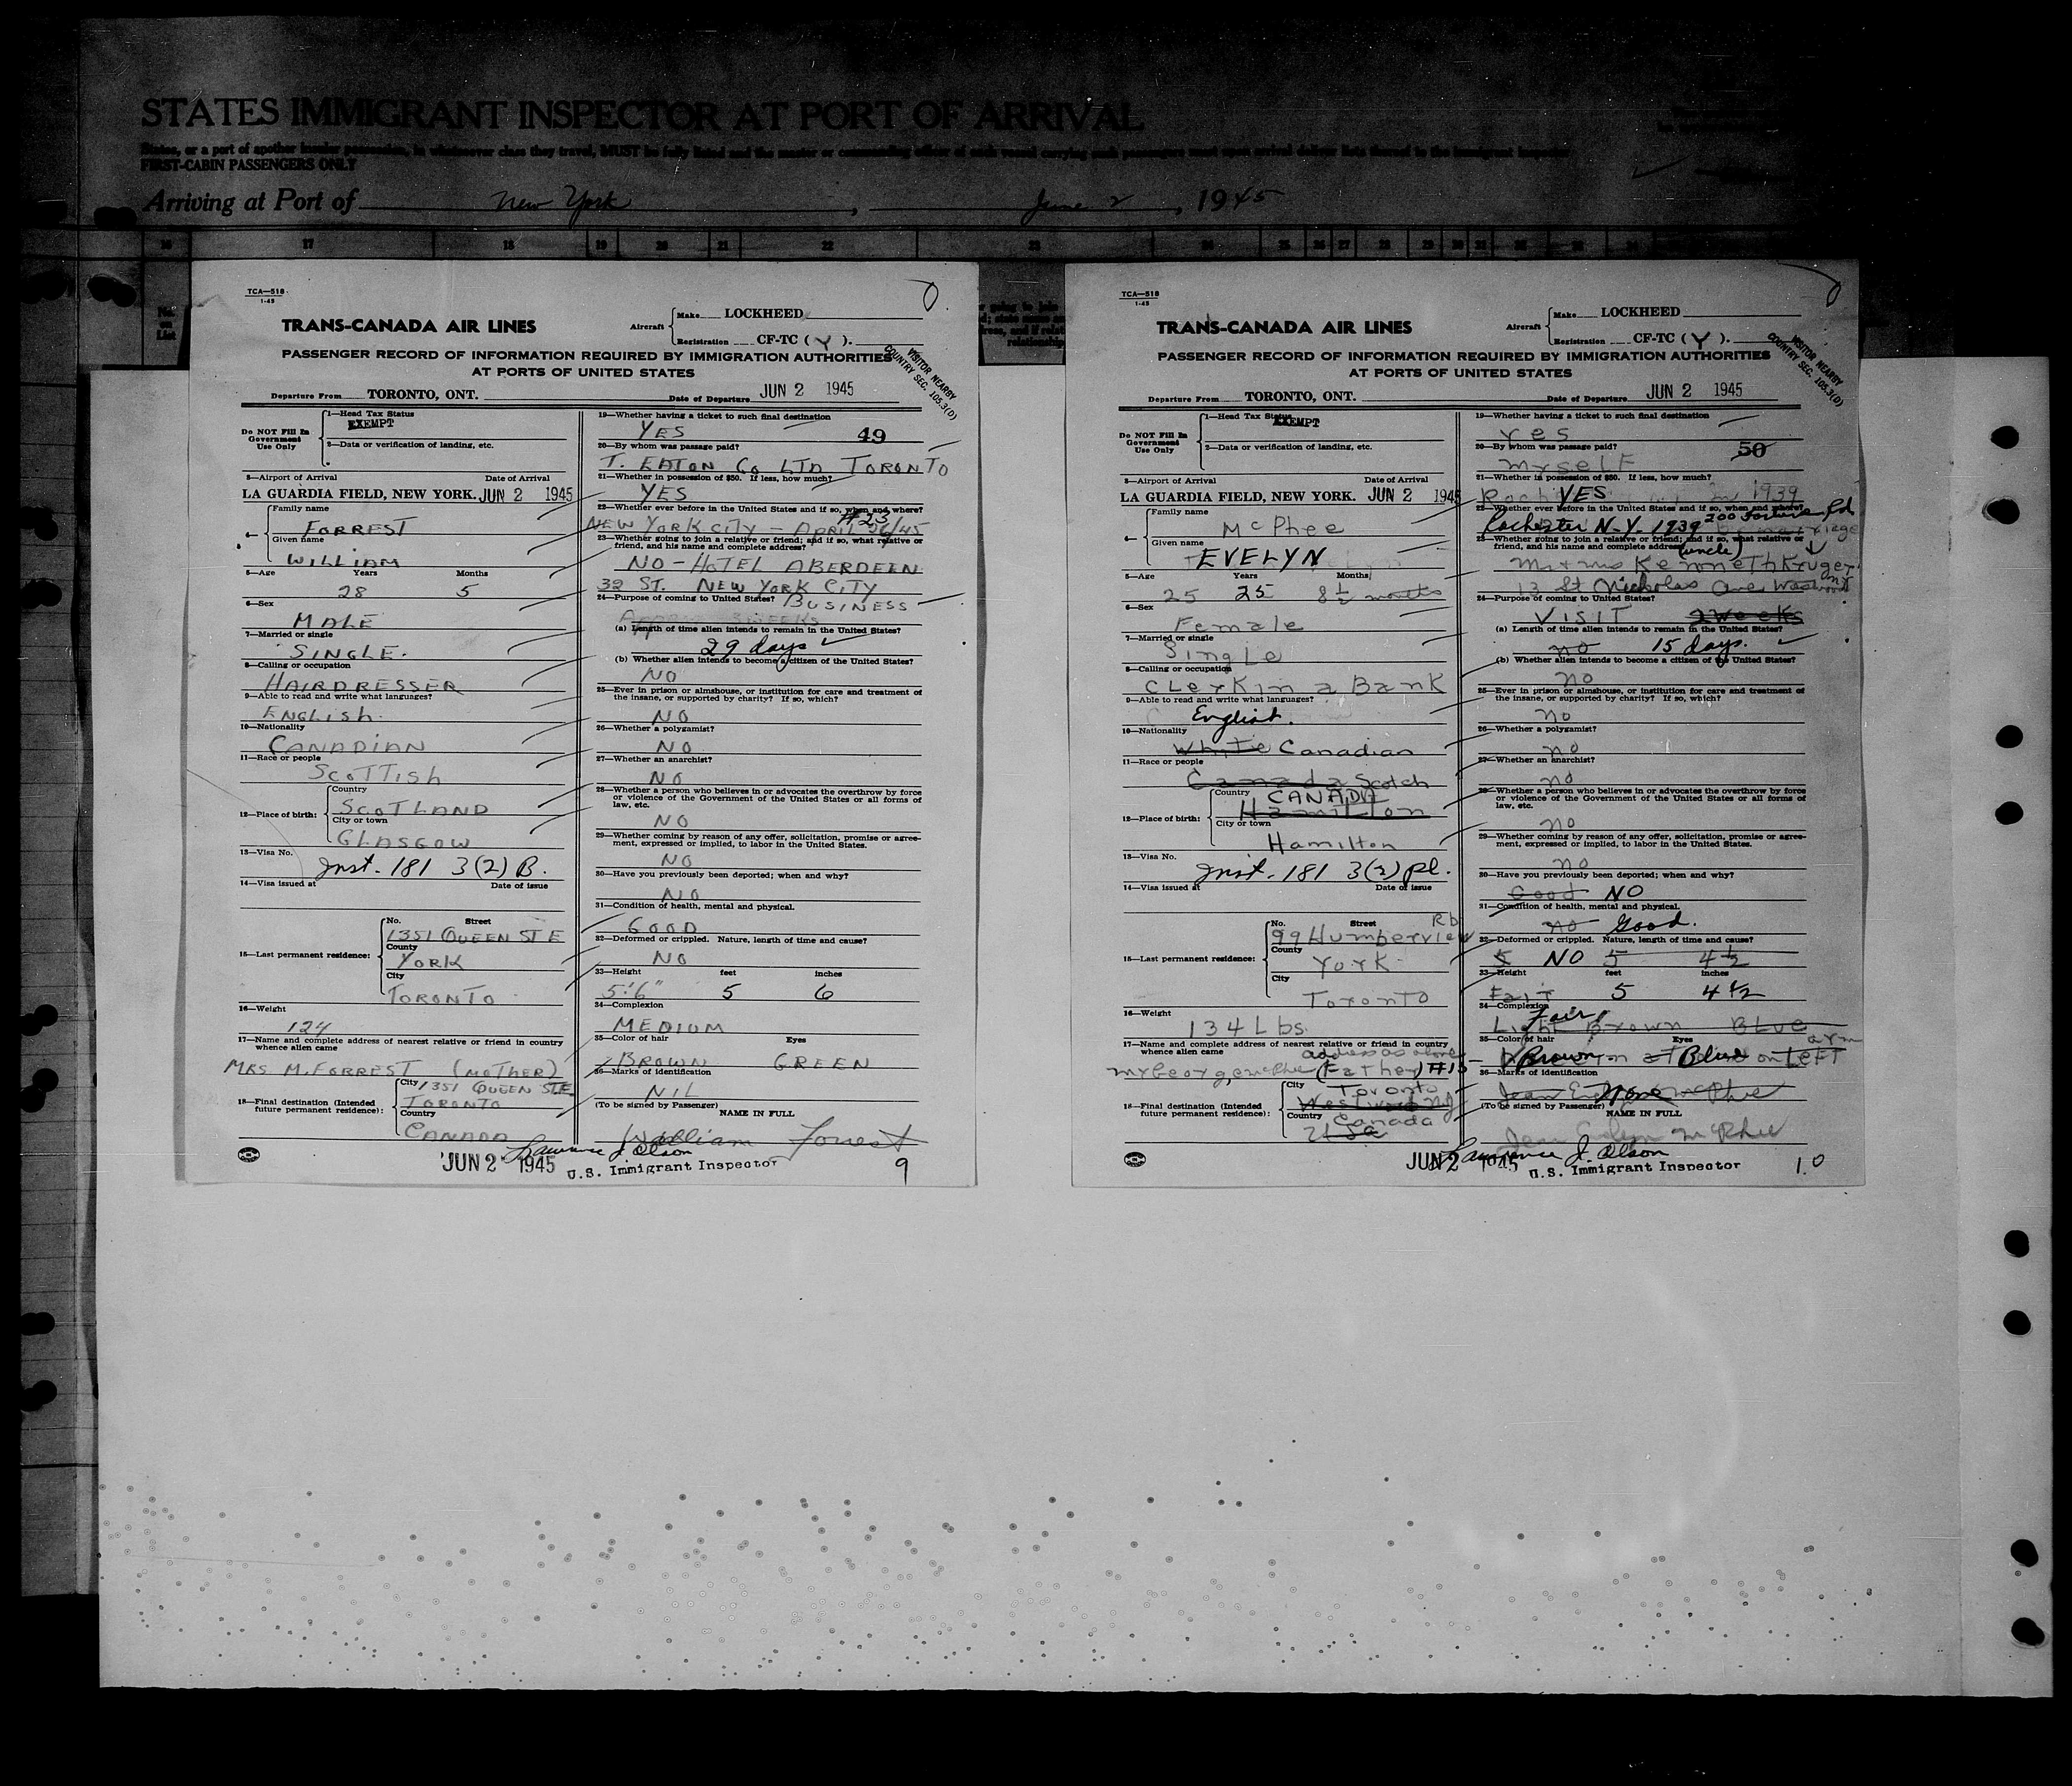 STATES IMMIGRANT INSPECTOR AT PORT OF ARRIVAL
States, or a port of another insular possession, in whatsoever class they travel, MUST be fully listed and the master or commanding officer of each vessel carrying such passengers must upon arrival deliver lists thereof to the immigrant inspector
FIRST-CABIN PASSENGERS ONLY
Arriving at Port of New York, June 2, 1945
16 17 18 19 20 21 22 23 24 25 26 27 28 29 30 31
No. on List
TCA—518
1-45
TRANS-CANADA AIR LINES
Aircraft
Make LOCKHEED
Registration CF-TC ( Y ).
PASSENGER RECORD OF INFORMATION REQUIRED BY IMMIGRATION AUTHORITIES
AT PORTS OF UNITED STATES
VISITOR NEARBY
COUNTRY SEC. 105.3(D)
Departure From TORONTO, ONT. Date of Departure JUN 2 1945
Do NOT Fill In Government Use Only
1—Head Tax Status
EXEMPT
2—Data or verification of landing, etc.
3—Airport of Arrival Date of Arrival
LA GUARDIA FIELD, NEW YORK. JUN 2 1945
4— Family name
FORREST
Given name
WILLIAM
5—Age Years Months
28 5
6—Sex
MALE
7—Married or single
SINGLE.
8—Calling or occupation
HAIRDRESSER
9—Able to read and write what languages?
ENGLISH.
10—Nationality
CANADIAN
11—Race or people
SCOTTISH
12—Place of birth:
Country
SCOTLAND
City or town
GLASGOW
13—Visa No.
Inst. 181 3(2) B.
14—Visa issued at Date of issue
15—Last permanent residence:
No. Street
1351 QUEEN ST E
County
YORK
City
TORONTO
16—Weight
124
17—Name and complete address of nearest relative or friend in country
whence alien came
MRS M. FORREST (MOTHER)
18—Final destination (Intended
future permanent residence):
City 1351 QUEEN ST E
TORONTO
Country
CANADA
JUN 2 1945
19—Whether having a ticket to such final destination
YES 49
20—By whom was passage paid?
T. EATON CO LTD. TORONTO
21—Whether in possession of $50. If less, how much?
YES
22—Whether ever before in the United States and if so, when and where?
#23
NEW YORK CITY - APRIL 26/45
23—Whether going to join a relative or friend; and if so, what relative or
friend, and his name and complete address?
NO - HOTEL ABERDEEN
32 ST. NEW YORK CITY
24—Purpose of coming to United States? BUSINESS
(a) Length of time alien intends to remain in the United States?
29 days
(b) Whether alien intends to become a citizen of the United States?
NO
25—Ever in prison or almshouse, or institution for care and treatment of
the insane, or supported by charity? If so, which?
NO
26—Whether a polygamist?
NO
27—Whether an anarchist?
NO
28—Whether a person who believes in or advocates the overthrow by force
or violence of the Government of the United States or all forms of
law, etc.
NO
29—Whether coming by reason of any offer, solicitation, promise or agree-
ment, expressed or implied, to labor in the United States.
NO
30—Have you previously been deported; when and why?
NO
31—Condition of health, mental and physical.
GOOD
32—Deformed or crippled. Nature, length of time and cause?
NO
33—Height feet inches
5'6" 5 6
34—Complexion
MEDIUM
35—Color of hair Eyes
BROWN GREEN
36—Marks of identification
NIL
(To be signed by Passenger) NAME IN FULL
William Forrest
Lawrence J. Olson
U.S. Immigrant Inspector
9
TCA—518
1-45
TRANS-CANADA AIR LINES
Aircraft
Make LOCKHEED
Registration CF-TC ( Y ).
PASSENGER RECORD OF INFORMATION REQUIRED BY IMMIGRATION AUTHORITIES
AT PORTS OF UNITED STATES
VISITOR NEARBY
COUNTRY SEC. 105.3(D)
Departure From TORONTO, ONT. Date of Departure JUN 2 1945
Do NOT Fill In Government Use Only
1—Head Tax Status
EXEMPT
2—Data or verification of landing, etc.
3—Airport of Arrival Date of Arrival
LA GUARDIA FIELD, NEW YORK. JUN 2 1945
4— Family name
McPhee
Given name
EVELYN
5—Age Years Months
25 25 8 1/2 months
6—Sex
Female
7—Married or single
Single
8—Calling or occupation
Clerk in a Bank
9—Able to read and write what languages?
English.
10—Nationality
White Canadian
11—Race or people
Canada Scotch
12—Place of birth:
Country
CANADA
Hamilton
City or town
Hamilton
13—Visa No.
Inst. 181 3(2) Pl.
14—Visa issued at Date of issue
15—Last permanent residence:
No. Street Rd
99 Humberview
County
York
City
Toronto
16—Weight
134 Lbs.
17—Name and complete address of nearest relative or friend in country
whence alien came
address as above
Mr George McPhee (Father) #15
18—Final destination (Intended
future permanent residence):
City
Toronto
Westwood NJ
Country
Canada
USA
JUN 2 1945
19—Whether having a ticket to such final destination
Yes
50
20—By whom was passage paid?
myself
21—Whether in possession of $50. If less, how much?
YES in 1939
22—Whether ever before in the United States and if so, when and where?
Rochester N.Y. 1939 200 Rd.
23—Whether going to join a relative or friend; and if so, what relative or
friend, and his name and complete address? (uncle)
Mr & Mrs Kenneth Kruger
13 St Nicholas Ave Westwood NJ
24—Purpose of coming to United States?
VISIT 2 weeks
(a) Length of time alien intends to remain in the United States?
no 15 days.
(b) Whether alien intends to become a citizen of the United States?
no
25—Ever in prison or almshouse, or institution for care and treatment of
the insane, or supported by charity? If so, which?
no
26—Whether a polygamist?
no
27—Whether an anarchist?
no
28—Whether a person who believes in or advocates the overthrow by force
or violence of the Government of the United States or all forms of
law, etc.
no
29—Whether coming by reason of any offer, solicitation, promise or agree-
ment, expressed or implied, to labor in the United States.
no
30—Have you previously been deported; when and why?
Good NO
31—Condition of health, mental and physical.
no Good.
32—Deformed or crippled. Nature, length of time and cause?
5 NO 5 4 1/2
33—Height feet inches
Fair 5 4 1/2
34—Complexion
Fair
Light Brown Blue
35—Color of hair Eyes
arm
Brown Blue on Left
36—Marks of identification
Jean Evelyn McPhee None
(To be signed by Passenger) NAME IN FULL
Jean Evelyn McPhee
Lawrence J. Olson
U.S. Immigrant Inspector
10